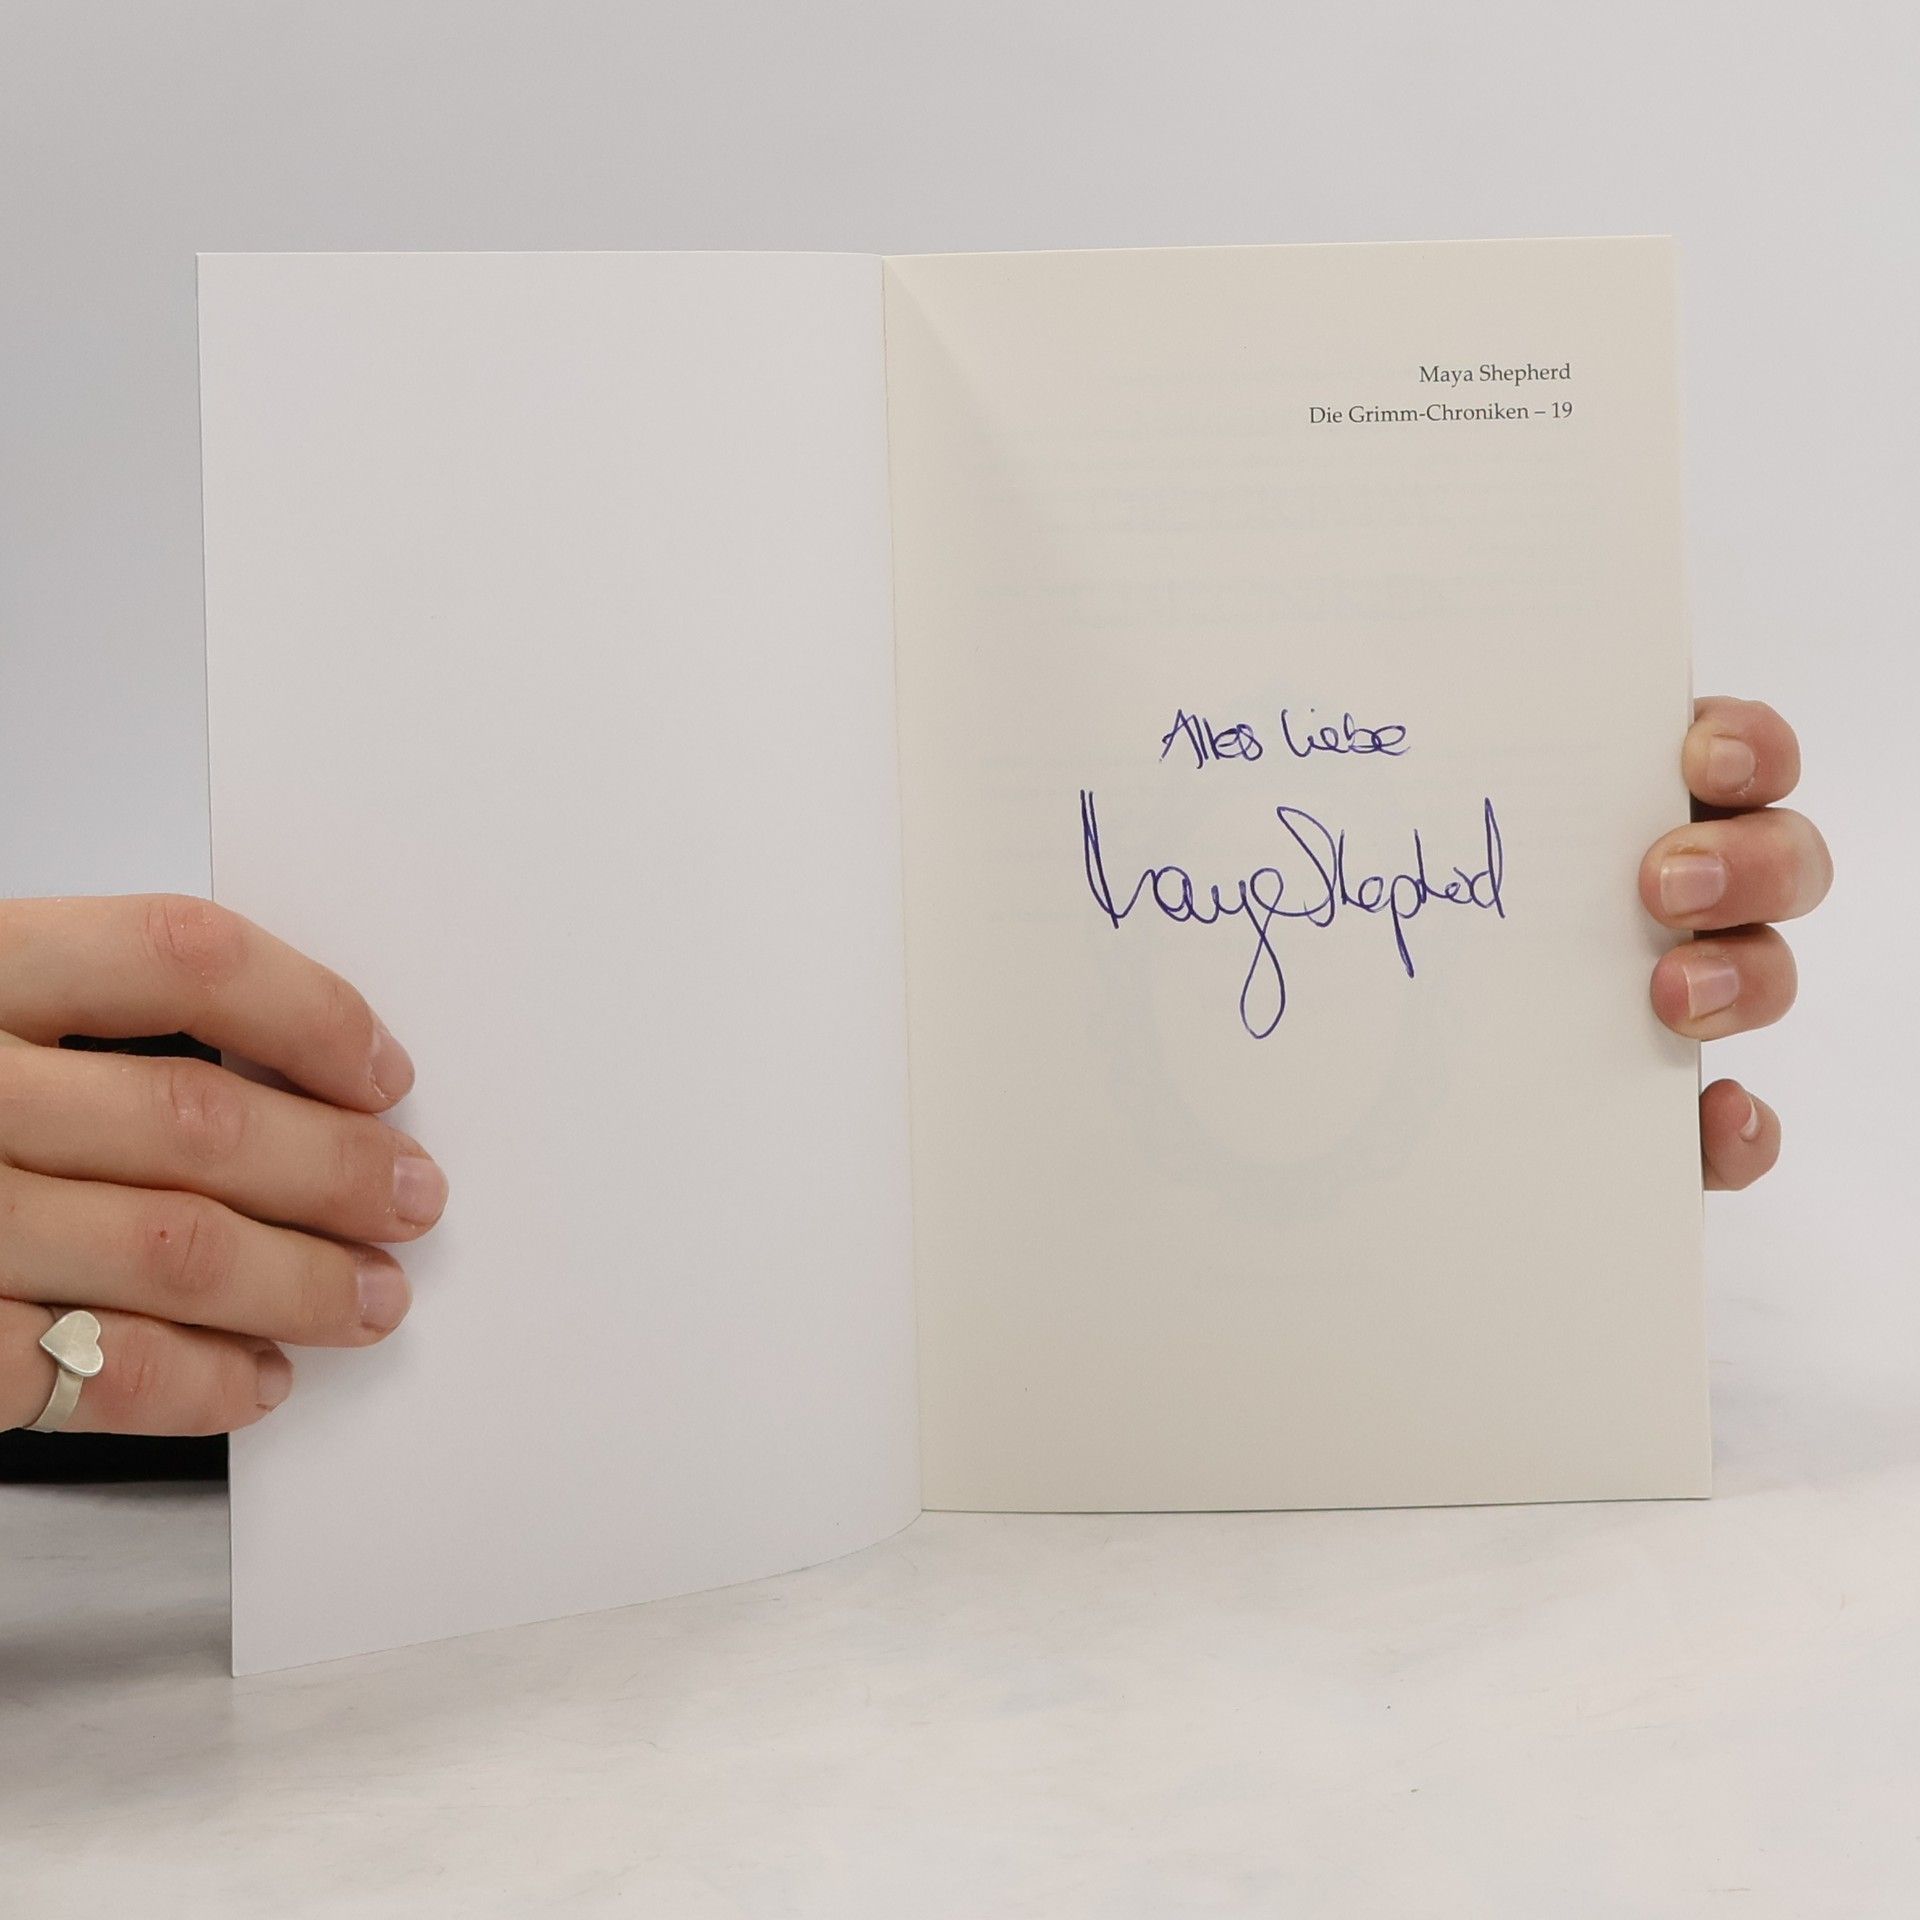 Maya Shepherd
Die Grimm-Chroniken – 19
Alles Liebe
Maya Shepherd